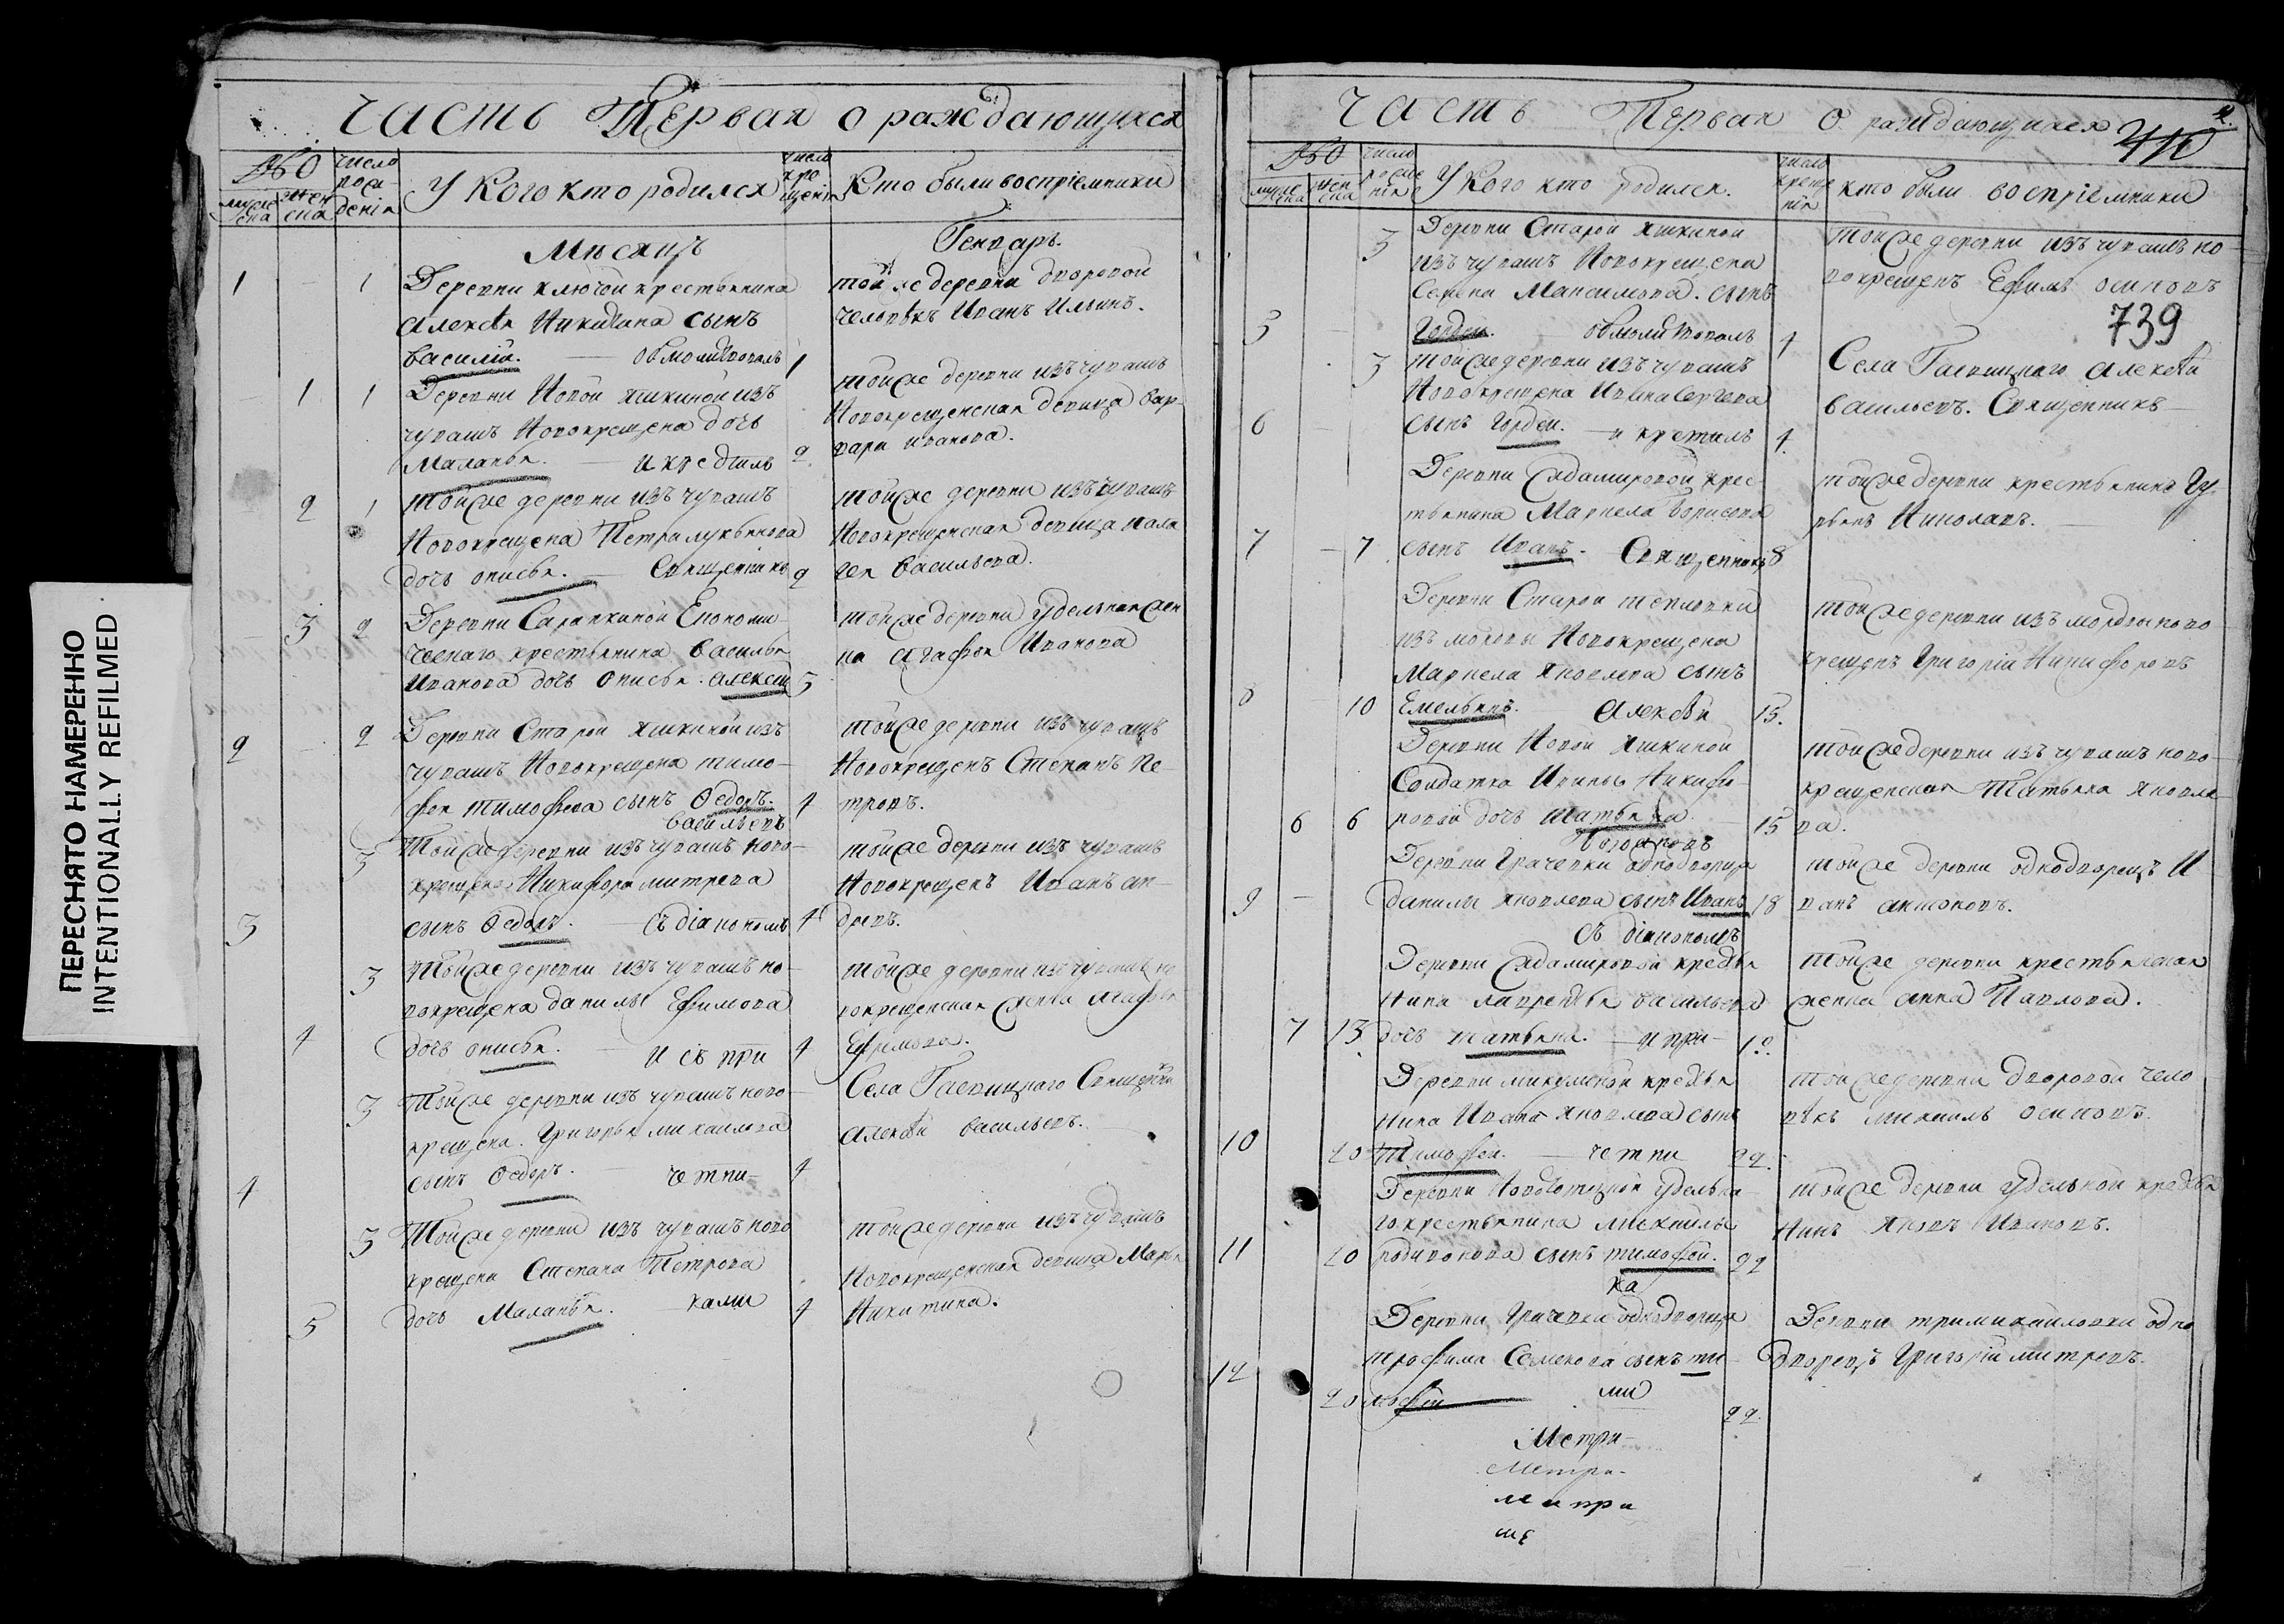 ПЕРЕСНЯТО НАМЕРЕННО
INTENTIONALLY REFILMED
Часть Первая о раждающихся
Число
рож
денія
У Кого кто родился
число
кре
щенія
Кто были воспріемники
муже
ска
жен
ска
Мѣсяцъ
Генваръ.
1 1
Деревни Ключей крестьянина
Алексѣя Никитина сынъ
Василій. обмолитвовалъ 1
той же деревни дворовой
человѣкъ Иванъ Ильинъ.
1 1
Деревни Новой Яшкиной изъ
чувашъ Новокрещена дочь
Маланья. и крестилъ 2
той же деревни изъ чувашъ
Новокрещенская девица Вар
вара Иванова.
2 1
той же деревни изъ чувашъ
Новокрещена Петра Лукьянова
дочь Анисья. Священникъ 2
той же деревни изъ чувашъ
Новокрещенская девица Пала
гея Васильева.
3 2
Деревни Економи
ческаго крестьянина Василья
Иванова дочь Анисья. Алексей 3
той же деревни удельная жен
ка Агафья Иванова
2 2
Деревни Старой Яшкиной изъ
чувашъ Новокрещена Тимо
фея Тимофеева сынъ Ѳедоръ. 4
Васильевъ
той же деревни изъ чувашъ
Новокрещенъ Степанъ Пе
тровъ.
3
Той же деревни изъ чувашъ ново
крещена Никифора Митрева
3 сынъ Ѳедоръ. съ діакономъ 4
той же деревни изъ чувашъ
Новокрещенъ Иванъ Ан
древъ.
3
Той же деревни изъ чувашъ но
вокрещена Данилы Ефимова
4 дочь Анисья. и съ при 4
той же деревни изъ чувашъ но
вокрещенская женка Агафья
Ефимова.
3
Той же деревни изъ чувашъ ново
крещена Григорья Михайлова
4 сынъ Ѳедоръ. четни 4
Села Гаевицкаго Священникъ
Алексѣй Васильевъ.
3
Той же деревни изъ чувашъ ново
крещена Степана Петрова
5 дочь Маланья. ками 4
той же деревни изъ чувашъ
Новокрещенская девица Марья
Никитина.
Часть Первая о раждающихся
410
739
муже
ска
жен
ска
У Кого кто родился.
число
кто были воспріемники
3
Деревни Старой Яшкиной
изъ чувашъ Новокрещена
Семена Максимова. сынъ
5 Гордей. обмолитвовалъ 4
той же деревни изъ чувашъ но
вокрещенъ Ефимъ Осиповъ
3
той же деревни изъ чувашъ
Новокрещена Ивана Сергева
6 сынъ Гордей. и крестилъ 4.
Села Гаевицкаго Алексѣй
Васильевъ. Священникъ
Деревни Сядамировой крес
тьянина Маркела Борисова
7 7 сынъ Иванъ. Священникъ 8
той же деревни крестьянинъ Гу
рьянъ Николавъ.
Деревни Старой Тепловки
изъ мордвы Новокрещена
Маркела Яковлева сынъ
8 10 Емельянъ. Алексѣй 15.
той же деревни изъ мордвы ново
крещенъ Григорій Никифоровъ
Деревни Новой Яшкиной
Солдатка Ирины Никифо
6 6 ровой дочь Татьяна 15
той же деревни изъ чувашъ ново
крещенская Татьяна Яковле
ва.
Деревни Грачевки однодворца
9 Данилы Яковлева сынъ Иванъ 18
съ діакономъ
той же деревни однодворецъ И
ванъ Аксеновъ.
Деревни Сядамировой крестья
нина Лаврентья Васильева
7 13 дочь Татьяна. и при
той же деревни крестьянская
женка Анна Павлова.
Деревни Микулиной крестья
нина Ивана Яковлева сынъ
10 20 Тимофей. четни 22.
той же деревни дворовой чело
вѣкъ Михайлъ Осиповъ.
удельна
го крестьянина Михайлы
11 20 Родионова сынъ Тимофей. 22
ка
той же деревни удельной крестья
нинъ Яковъ Ивановъ.
Деревни Грачевки однодворца
12 Трофима Семенова сынъ Ти
20 мофей ми 22.
Деревни Тримихайловки одно
дворецъ Григорій Митревъ.
Метри
Метри